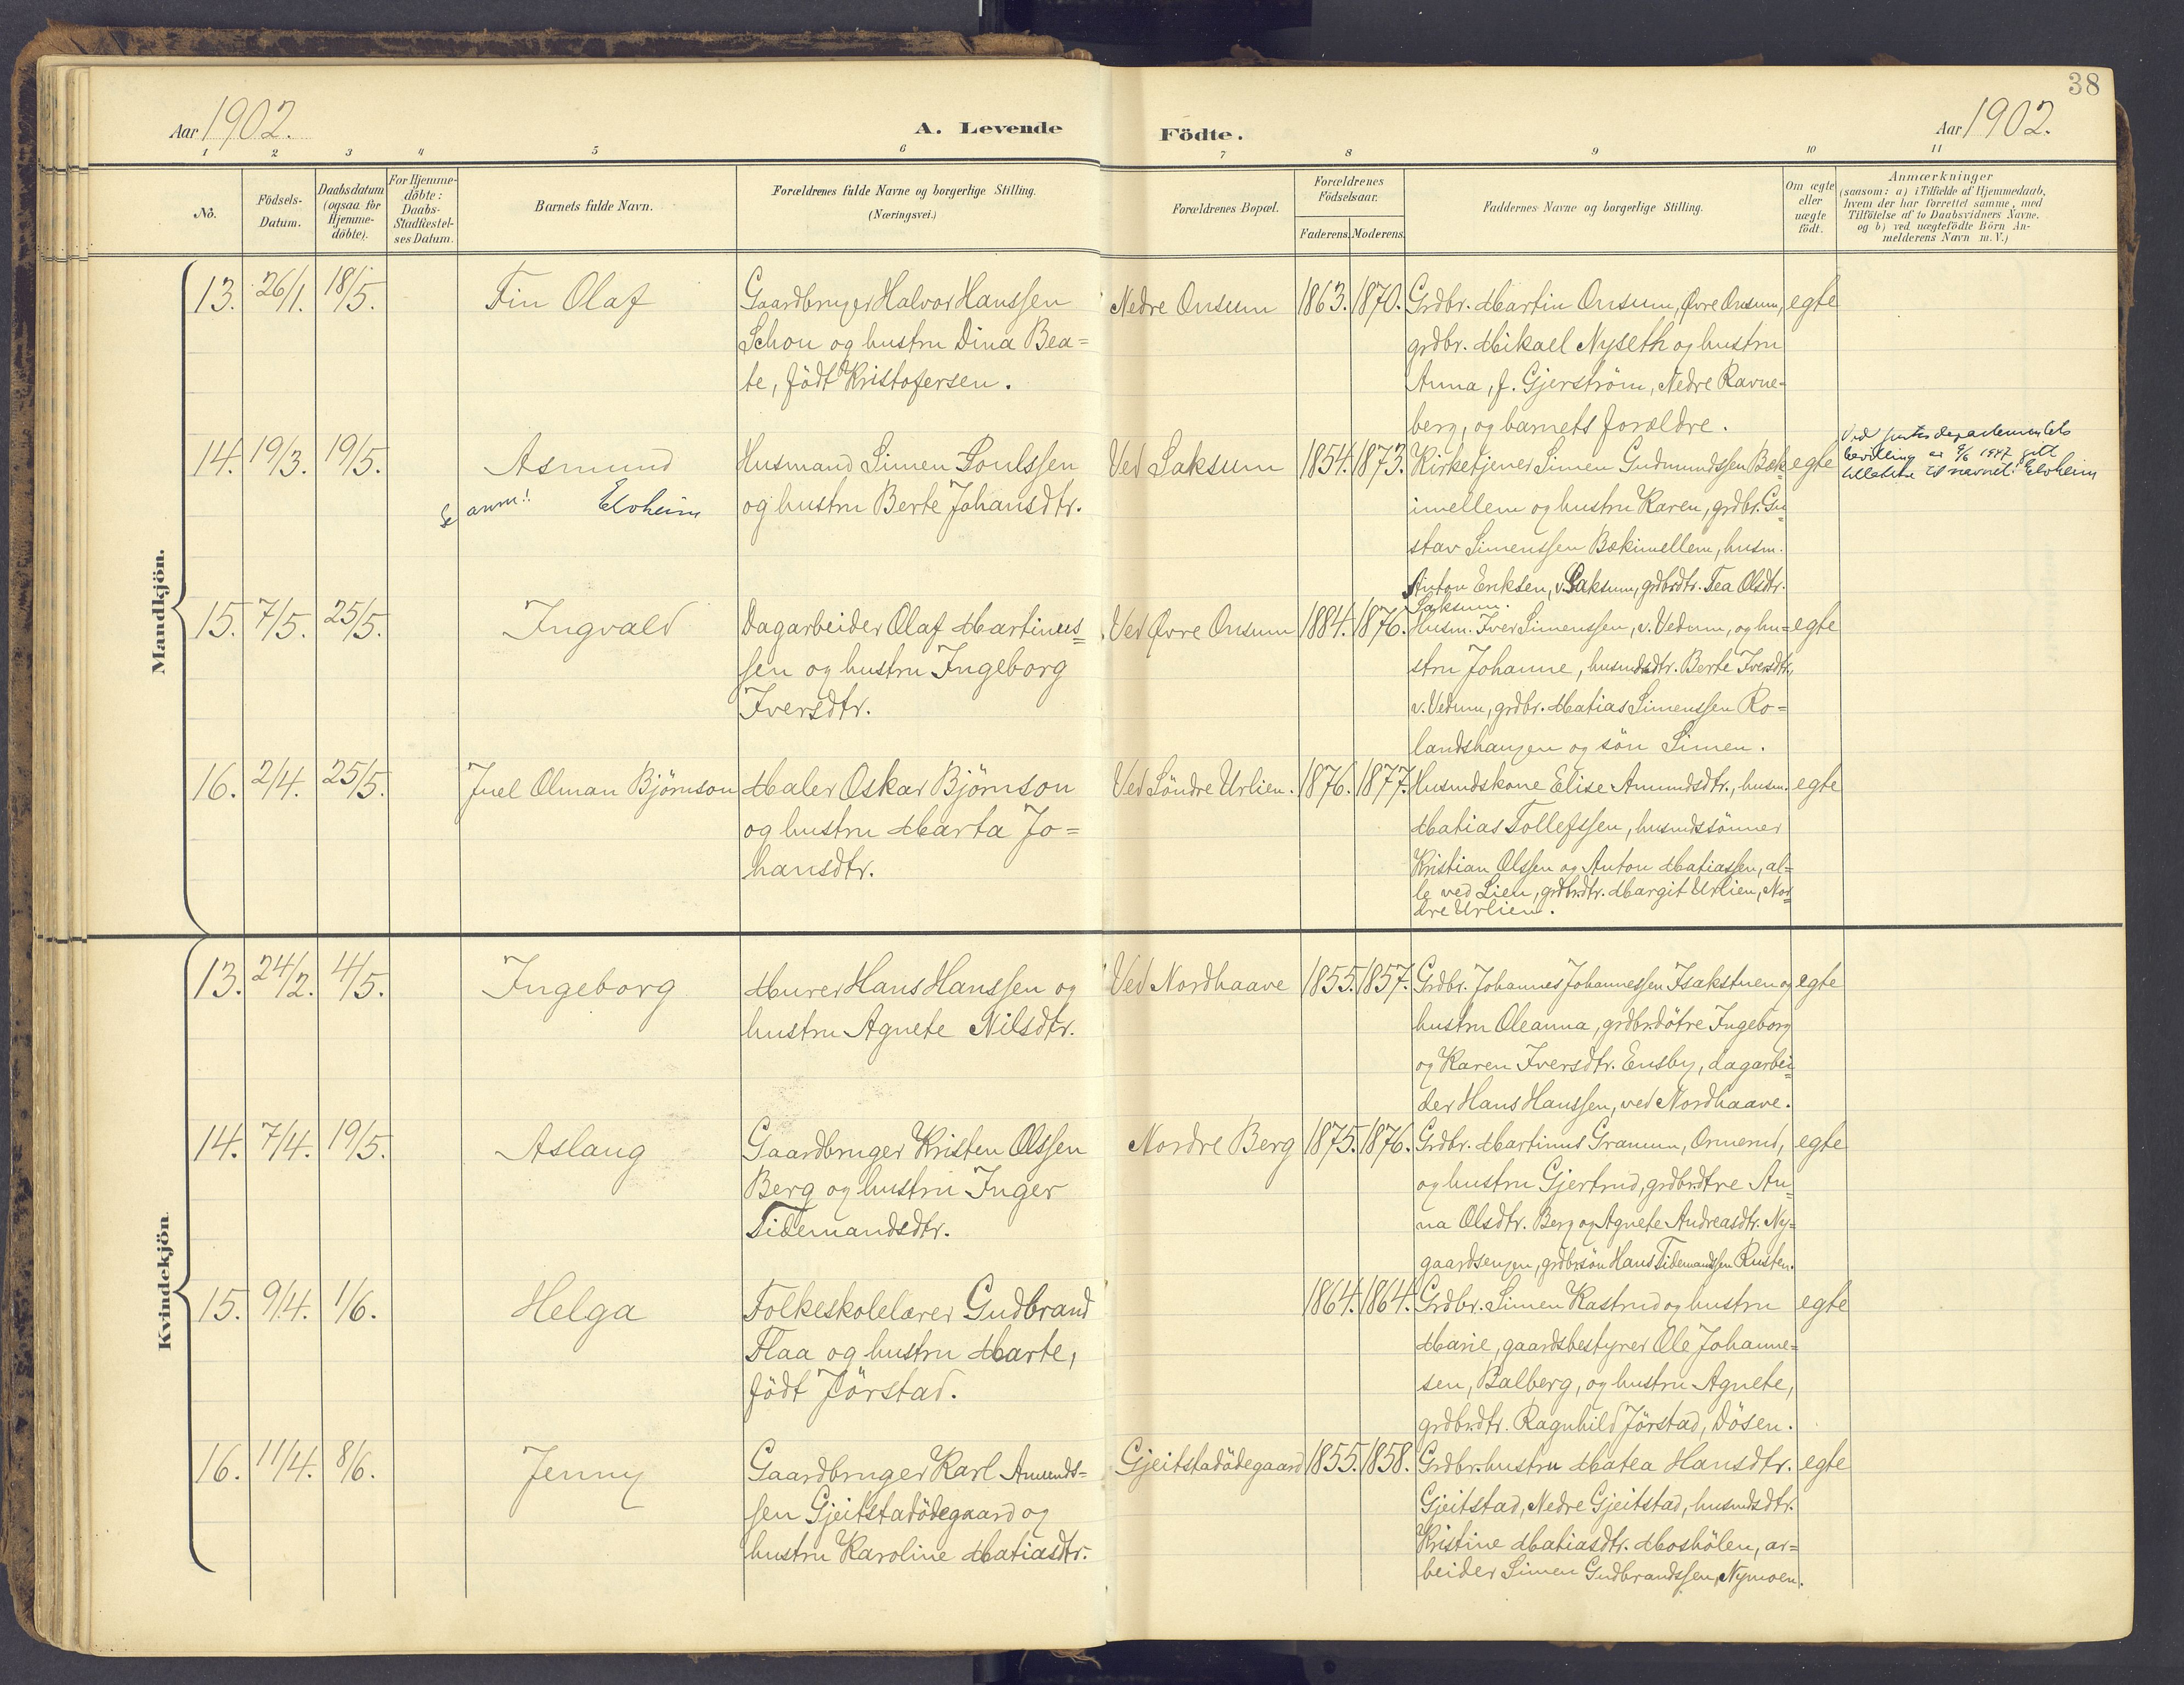 38
Aar 1902.
A. Levende Födte.
Aar 1902.
1 2 3 4 5 6 7 8 9 10 11
No.
Födsels-
Datum.
Daabsdatum
(ogsaa for
Hjemme-
döbte).
For Hjemme-
döbte:
Daabs-
Stadfæstel-
ses Datum.
Barnets fulde Navn.
Forældrenes fulde Navne og borgerlige Stilling.
(Næringsvei.)
Forældrenes Bopæl.
Forældrenes
Födselsaar.
Faderens. Moderens.
Faddernes Navne og borgerlige Stilling.
Om ægte
eller
uægte
födt.
Anmærkninger
(saasom: a) i Tilfælde af Hjemmedaab,
hvem der har forrettet samme, med
Tilföielse af to Daabsvidners Navne.
og b) ved uægtefödte Börn An-
melderens Navn m. V.)
Mandkjön.
13. 26/1. 18/5. Fin Olaf
Gaardbruger Halvor Hanssen
Schou og hustru Dina Bea=
te, födt Kristofersen.
Nedre Onsum 1863. 1870.
Grdbr. Martin Onsum, Øvre Onsum,
grdbr. Mikael Nyseth og hustru
Anna, f. Gjerström, Nedre Ravne-
berg, og barnets forældre.
egte
14. 19/3. 19/5. Asmund
Se anm!! Elvheim
Husmand Simen Poulssen
og hustru Berte Johansdtr.
Ved Saksum 1854. 1873.
Kirketjener Simen Gudmundssen Bæk-
imellem og hustru Karen, grdbr. Gu=
stav Simenssen Bækimellem, husm.
Anton Eriksen, v. Saksum, grdbrdtr. Tea Olsdtr.
Saksum.
egte
Ved justisdepartementets
bevilling av 9/6 1947 gitt
tillatelse til navnet: Elvheim
15. 7/5. 25/5. Ingvald
Dagarbeider Olaf Martinus=
sen og hustru Ingeborg
Iversdtr.
Ved Øvre Onsum 1884. 1876.
Husm. Iver Simenssen, v. Vedum, og hu=
stru Johanne, husmdsdtr. Berte Iversdtr.,
v. Vedum, grdbr. Matias Simenssen Ro=
landshaugen og sön Simen.
egte
16. 2/4. 25/5. Juel Olman Björnson
Maler Oskar Björnson
og hustru Marta Jo=
hansdtr.
Ved Söndre Urlien. 1876. 1877.
Husmdskone Elise Amundsdtr., husm.
Matias Tollefssen, husmdssönner
Kristian Olssen og Anton Matiassen, al=
le ved Lien, grdbrdtr. Margit Urlien, Nor=
dre Urlien.
egte
Kvindekjön.
13. 24/2. 4/5. Ingeborg
Murer Hans Hanssen og
hustru Agnete Nilsdtr.
Ved Nordhaave 1855. 1857.
Grdbr. Johannes Johannessen Isakstuen og
hustru Oleanna, grdbr.dötre Ingeborg
og Karen Iversdtr. Ensby, dagarbei=
der Hans Hanssen, ved Nordhaave.
egte
14. 7/4. 19/5. Aslaug
Gaardbruger Kristen Olssen
Berg og hustru Inger
Tidemandsdtr.
Nordre Berg 1875. 1876.
Grdbr. Martinus Gramm, Ormerud,
og hustru Gjertrud, grdbrdtre An=
na Olsdtr. Berg og Agnete Andreasdtr. Ny=
gaardsengen, grdbrsön Hans Tidemandssen Rusten.
egte
15. 9/4. 1/6. Helga
Folkeskolelærer Gudbrand
Flaa og hustru Marte,
födt Jörstad.
1864. 1864.
Grdbr. Simen Kastrud og hustru
Marie, gaardsbestyrer Ole Johanne=
sen, Balberg, og hustru Agnete,
grdbrdtr. Ragnhild Jörstad, Dösen.
egte
16. 11/4. 8/6. Jenny
Gaardbruger Karl Amunds=
sen Gjeitstadödegaard og
hustru Karoline Matiasdtr.
Gjeitstadödegaard 1855. 1858.
Grdbr.hustru Matea Hansdtr.
Gjeitstad, Nedre Gjeitstad, husmdsdtr.
Kristine Matiasdtr. Moshölen, ar=
beider Simen Gudbrandssen, Nymoen.
egte